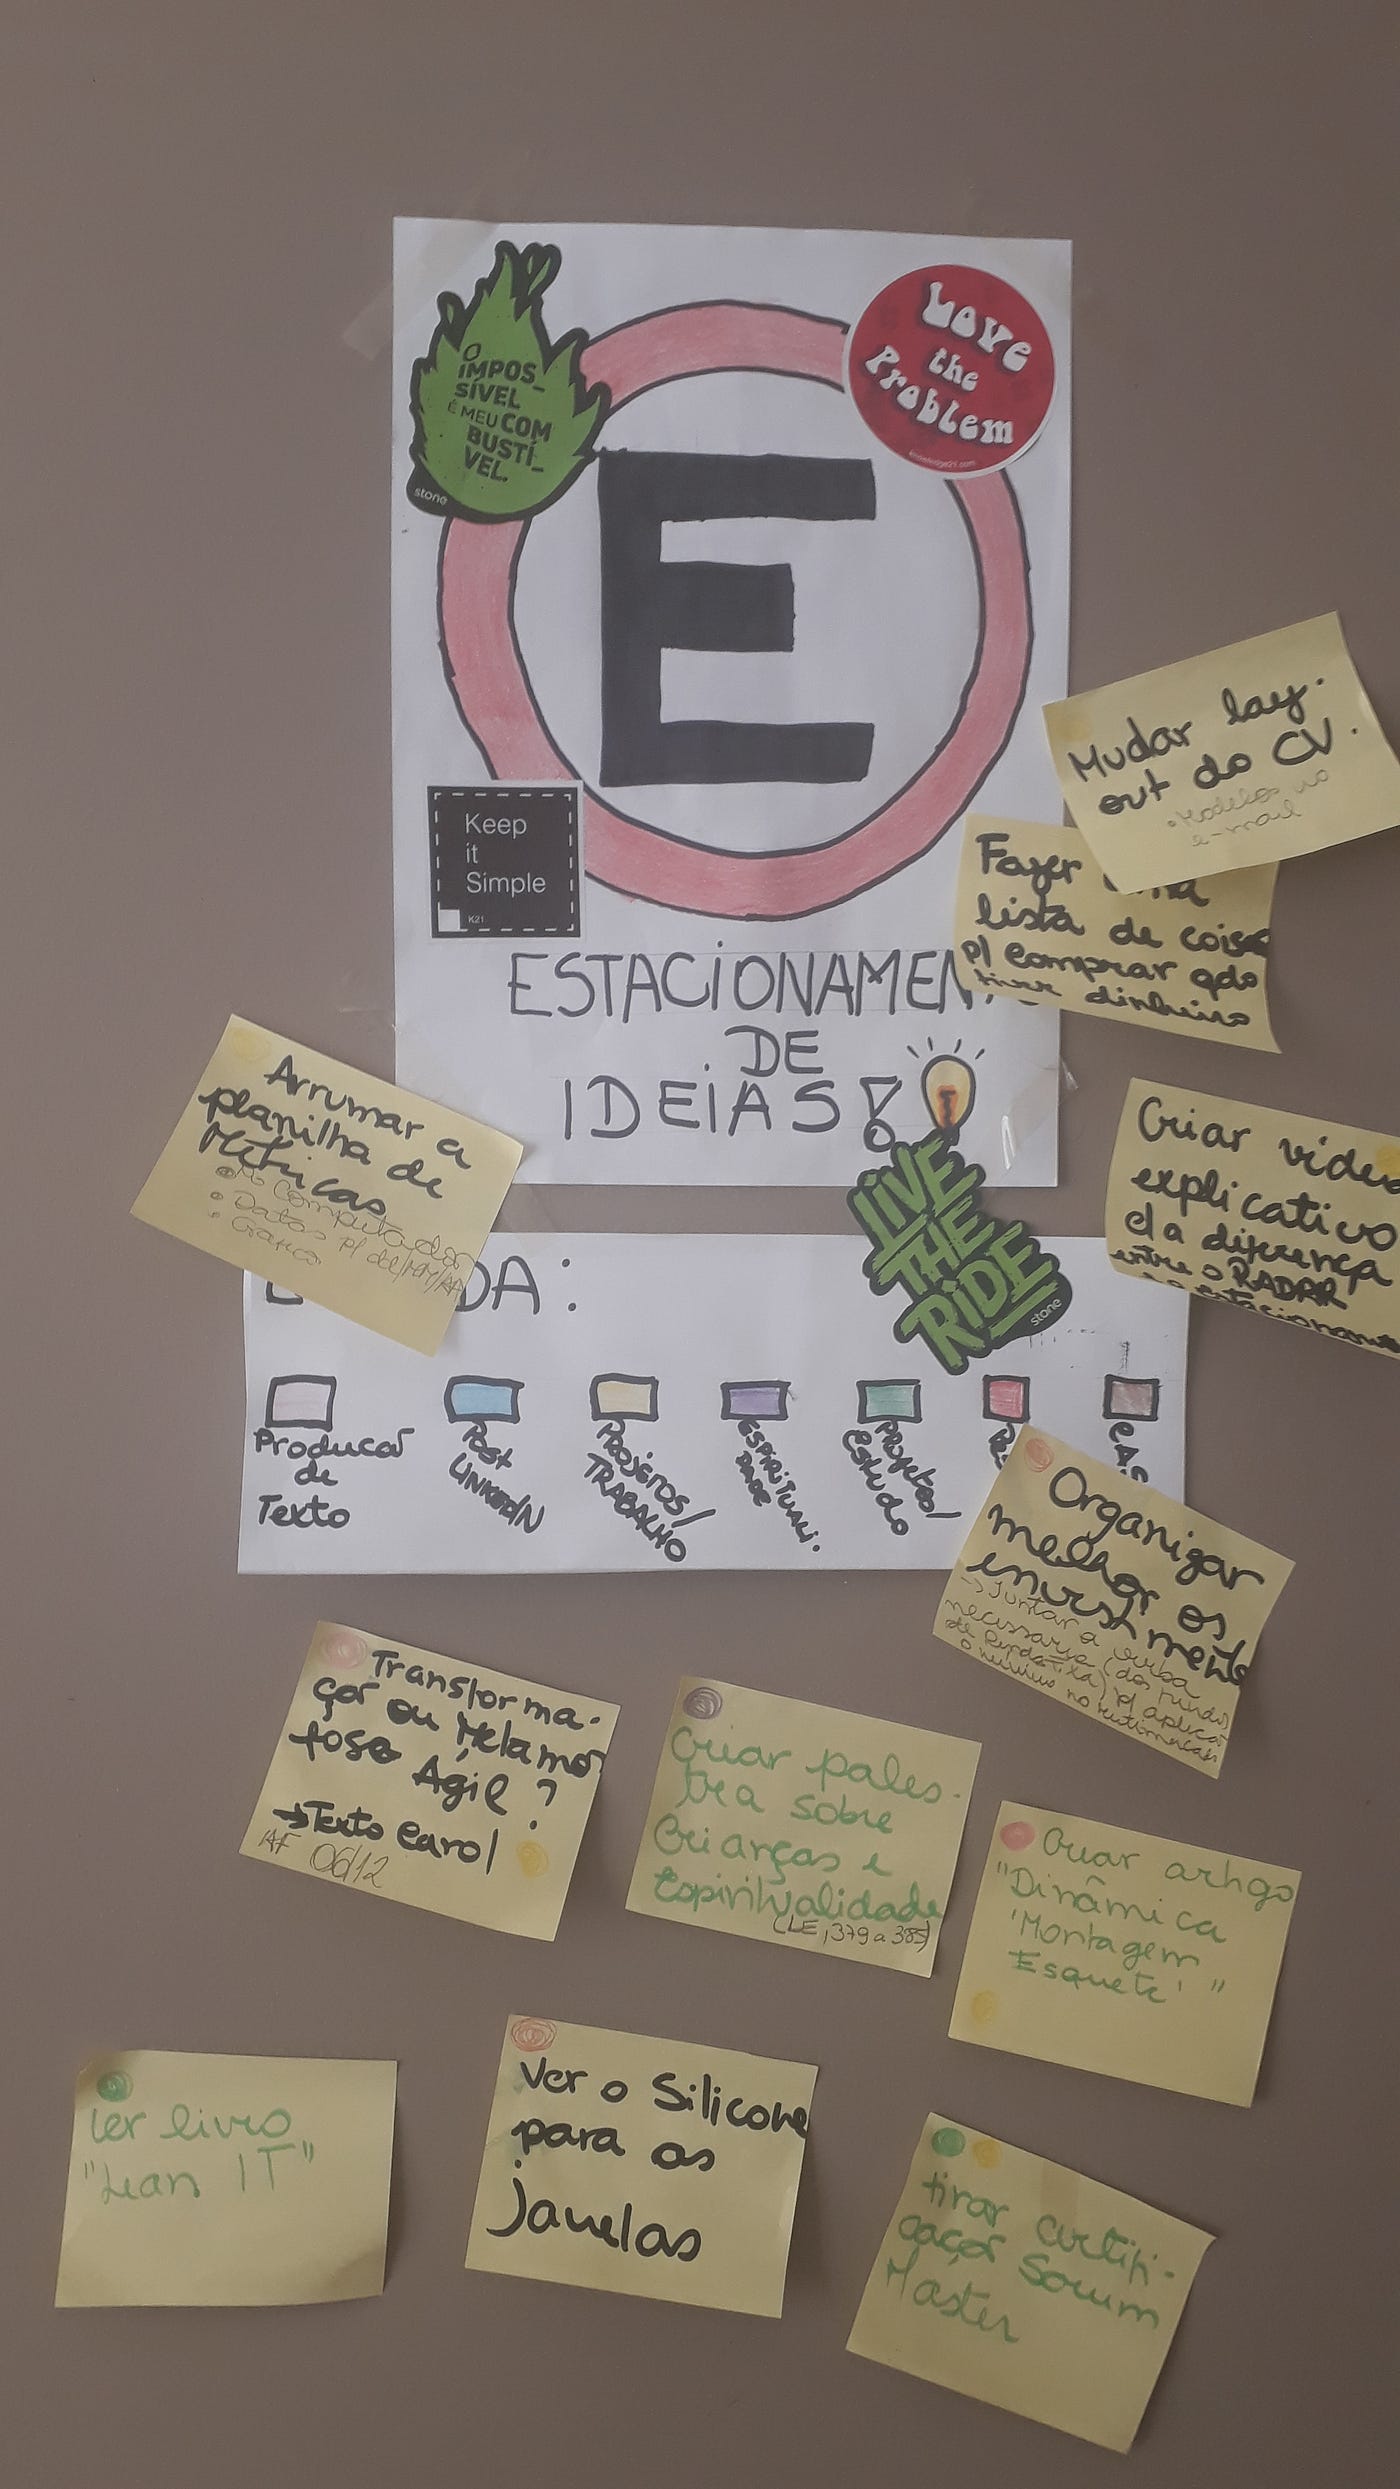 O
IMPOS-
SÍVEL
É MEU COM
BUSTÍ-
VEL.
stone
Love
the
Problem
knowledge21.com
E
Keep
it
Simple
K21
ESTACIONAMEN
DE
IDEIAS!
LIVE
THE
RIDE
stone
Mudar lay-
out do CV.
• Modelos no
e-mail
Fazer
lista de coisas
p/ comprar qdo
tiver dinheiro
Arrumar a
planilha de
Métricas
No computador
• Datas p/ dd/MM/AA
• Gráfico
Criar vídeo
explicativo
d a diferença
entre o RADAR
estacionamento
DA:
Produção
de
Texto
POST
LINKEDIN
PROJETOS/
TRABALHO
ESPIRITUALI-
DADE
PROJETOS/
ESTUDO
CAS
Organizar
melhor os
investimentos
→ Juntar a verba
necessária (dos fundos
de Renda Fixa) p/ aplicar
o mínimo no
Transforma-
ção ou Metamor
fose Ágil?
→ Texto Carol
06/12
Criar pales-
tra sobre
Crianças e
Espiritualidade
(LE, 379 a 385)
Criar artigo
"Dinâmica
'Montagem
Esquete' "
Ler livro
"Lean IT"
Ver o Silicone
para as
janelas
tirar certifi-
cação Scrum
Master